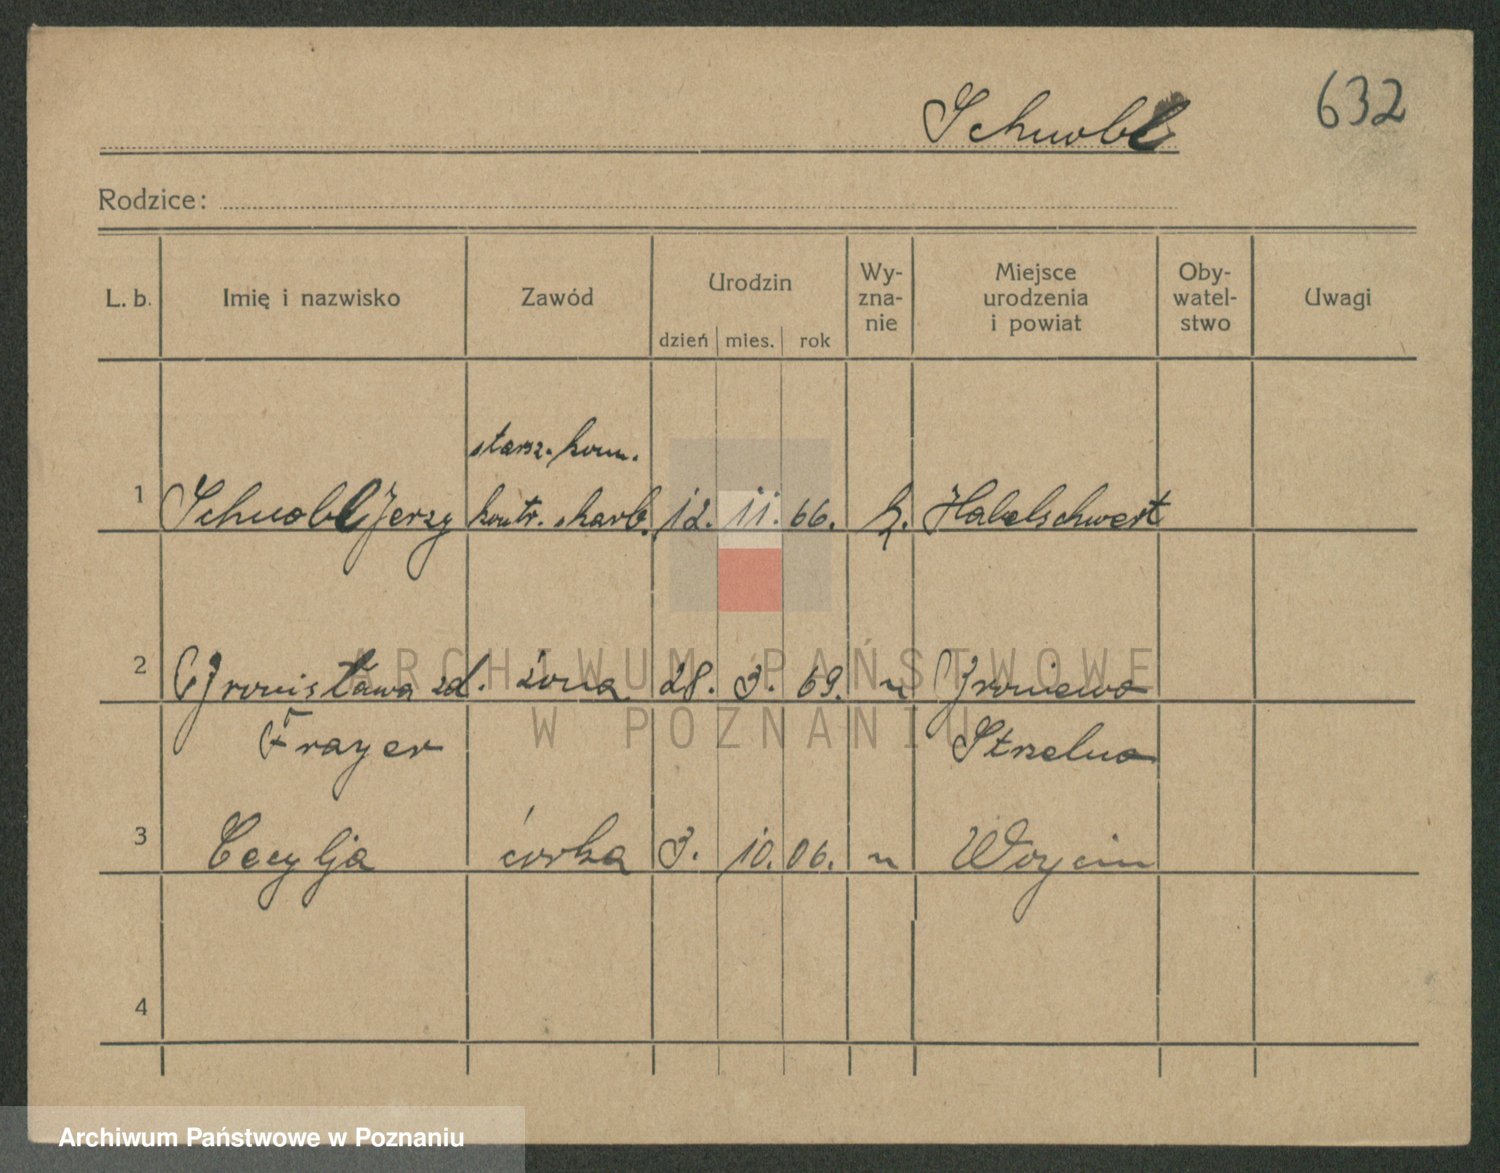 632
Schwobl
Rodzice:
L. b. Imię i nazwisko Zawód Urodzin dzień mies. rok Wy-zna-nie Miejsce urodzenia i powiat Oby-watel-stwo Uwagi
starsz. kom.
1 Schwobl Jerzy kontr. skarb. 12. 11. 66. k. Habelschwert
2 Bronisława zd. żona 28. 3. 69. " Broniewo
Frayer Strzelno
3 Cecylja córka 3. 10. 06. " Woycin
4
ARCHIWUM PAŃSTWOWE
W POZNANIU
Archiwum Państwowe w Poznaniu